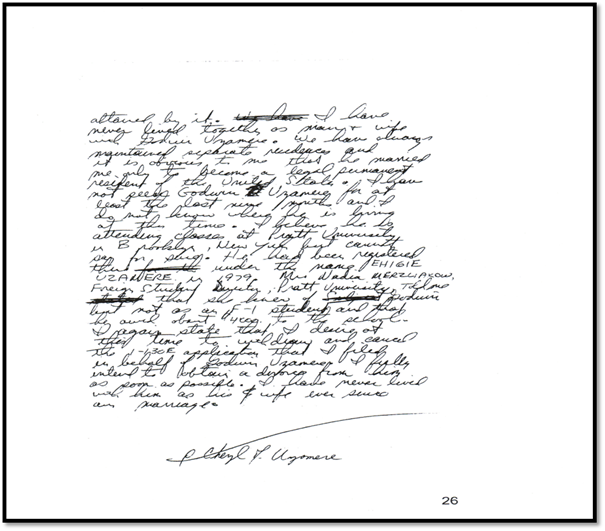 altained by it. I have
never lived together as man & wife
with Godwin Uzamere. We have always
maintained separate residences and
it is obvious to me that he married
me only to become a legal permanent
resident of the United States. I have
not seen Godwin E Uzamere for at
least the last nine months and I
do not know where he is living
at this time. I believe he is
attending classes at Pratt University
in Brooklyn, New York but cannot
say for sure. He had been registered
there under the name EHIGIE
UZAMERE in 1979. Mrs Nadia MERZLIAKOW,
Foreign Student Pratt University
that she knew of Godwin
but not as an F-1 student and that
he owed about to the school.
I again state that I desire at
this time to withdraw and cancel
the I-130E application that I filed
in behalf of Godwin Uzamere. I fully
intend to obtain a divorce from him
as soon as possible. I have never lived
with him as his wife ever since
our marriage.
Cheryl F. Uzamere
26